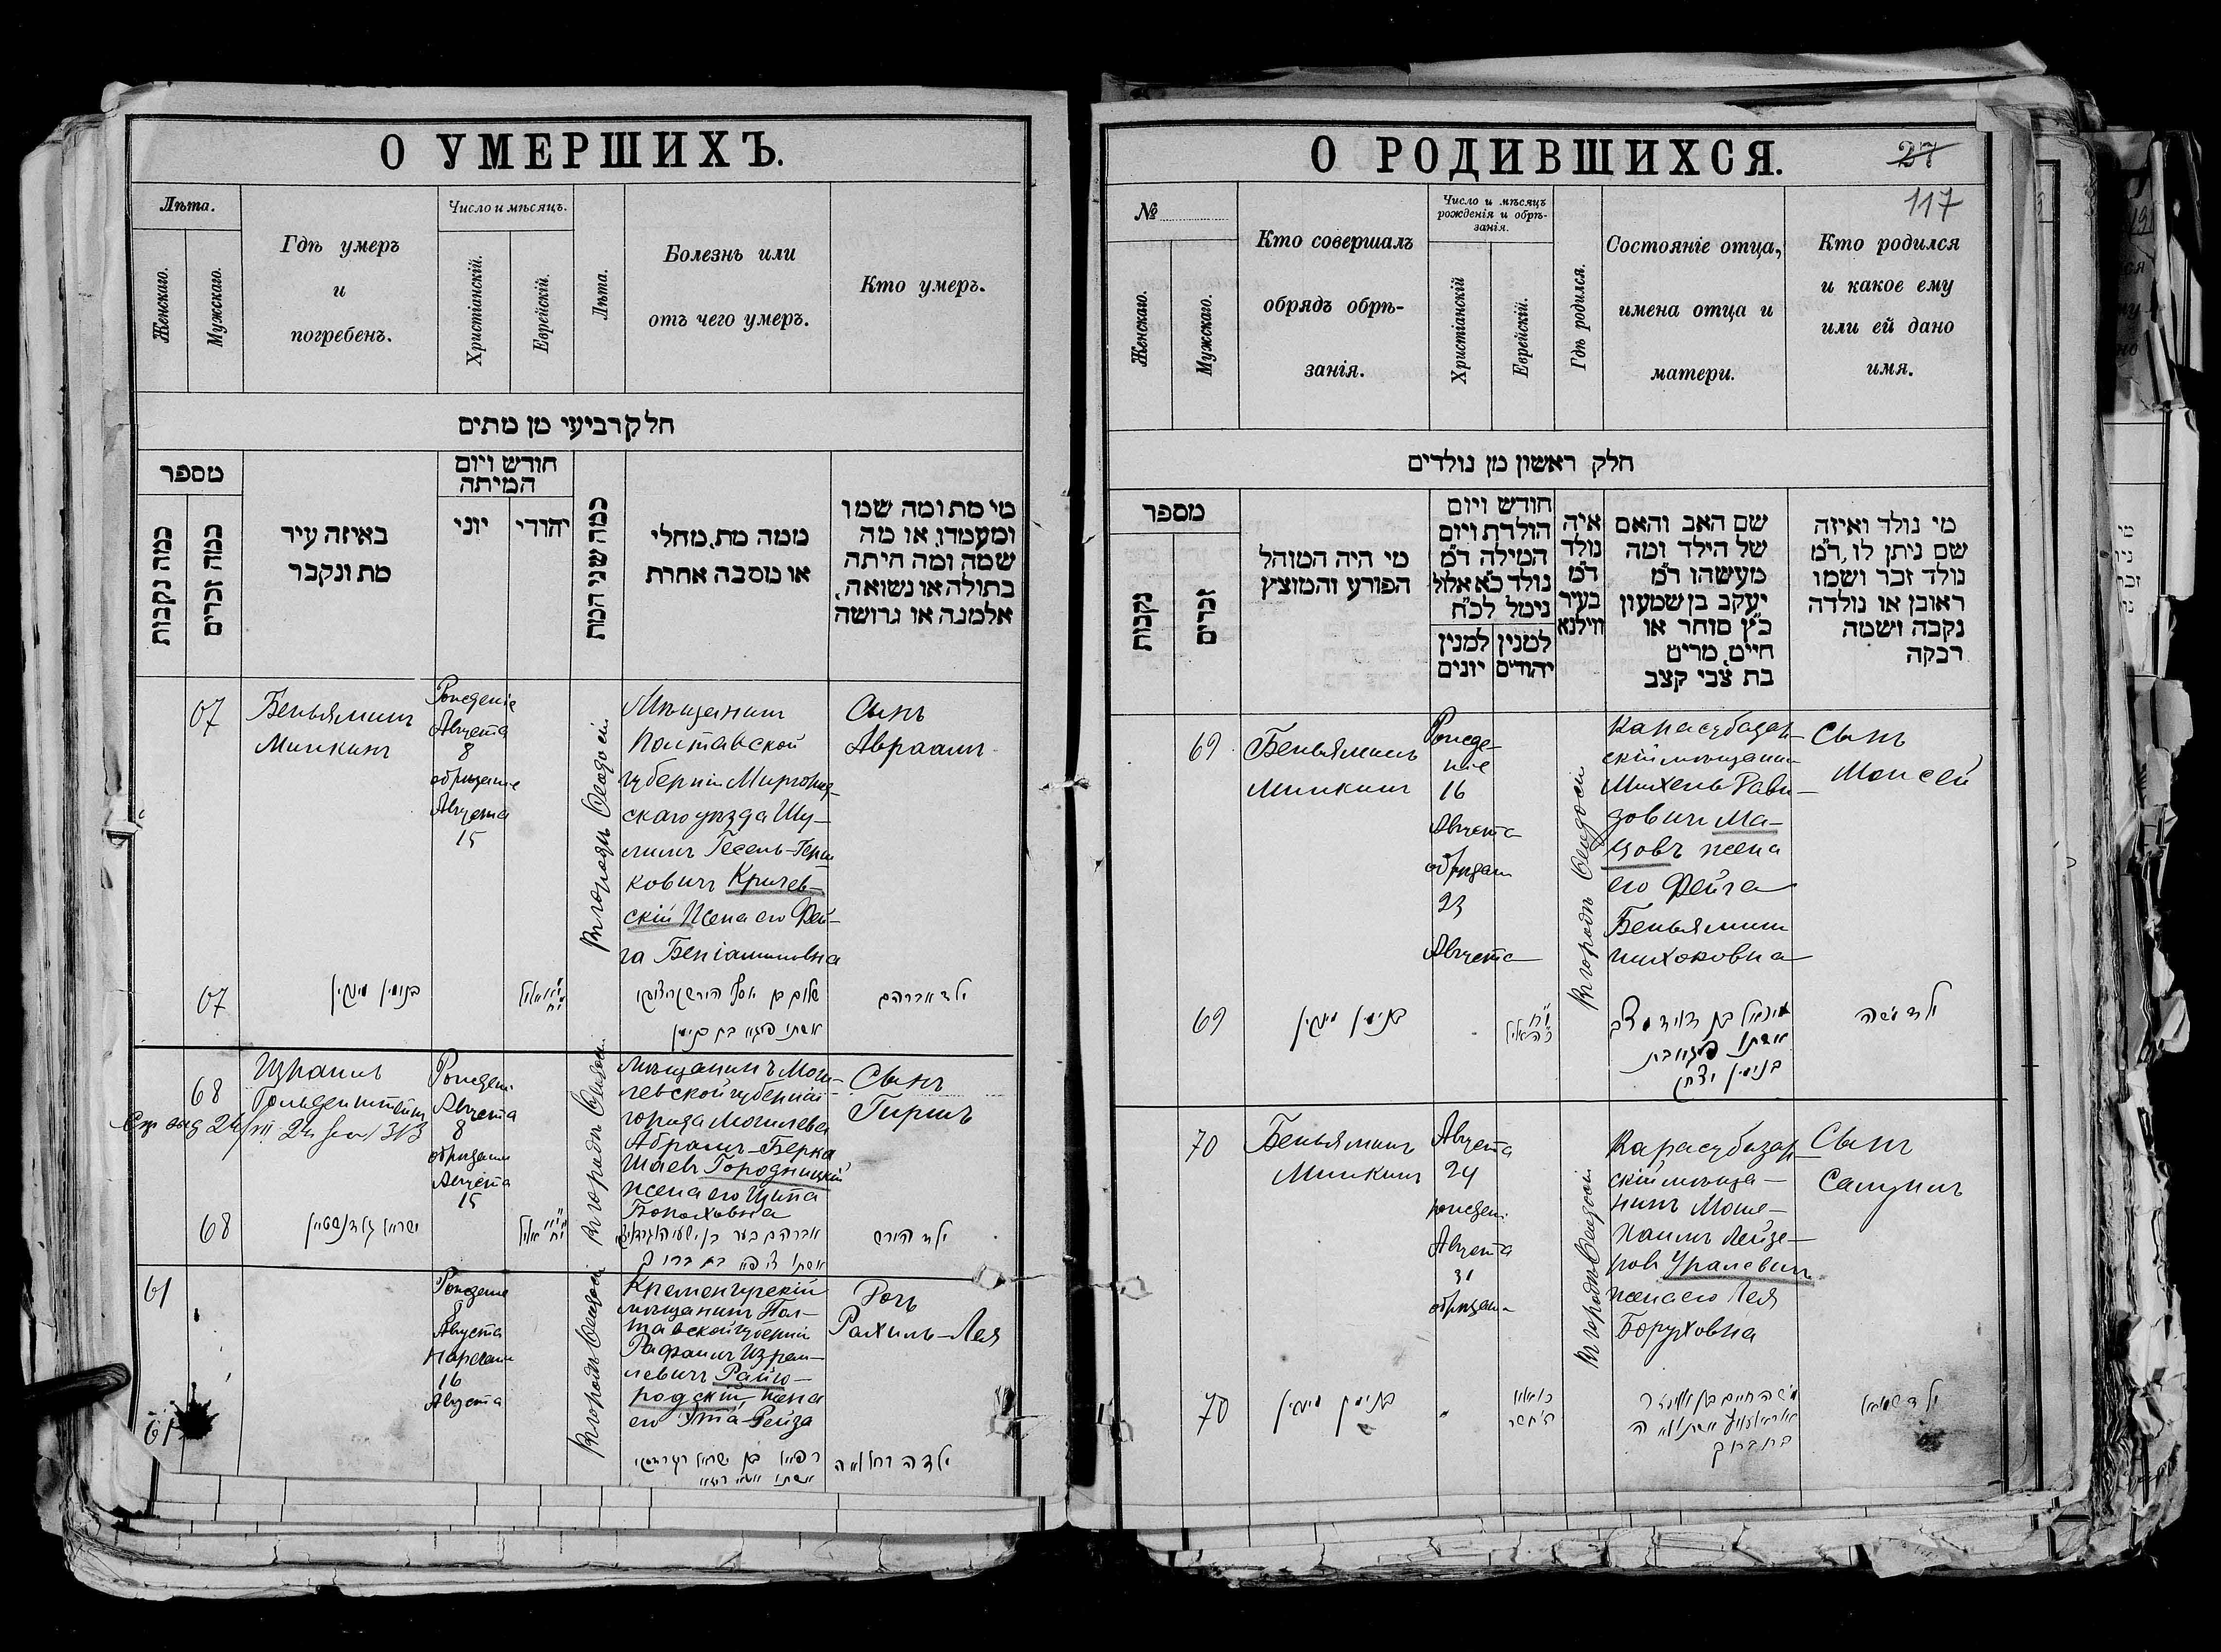 О УМЕРШИХЪ.
Лѣта.
Женскаго.
Мужскаго.
Гдѣ умеръ
и
погребенъ.
Число и мѣсяцъ.
Христіанскій.
Еврейскій.
Лѣта.
Болезнь или
отъ чего умеръ.
Кто умеръ.
חלק רביעי מן מתים
מספר
כמה נקבות
כמה זכרים
באיזה עיר
מת ונקבר
חודש ויום
המיתה
יוני
יהודי
כמה שני המת
ממה מת, מחלי
או מסבה אחרת
מי מת ומה שמו
ומעמדו, או מה
שמה ומה היתה
בתולה או נשואה,
אלמנה או גרושה
67
Беньяминъ
Минкинъ
Рожденіе
Августа
8
обрѣзаніе
Августа
15
въ городѣ Ѳеодосіи
Мѣщанинъ
Полтавской
губерніи Миргород-
скаго уѣзда
Кричев-
скій Жена его Фей-
га Беніаминовна
Сынъ
Авраамъ
67
בנימין מינקין
אשתו פייגא בת בנימין
ילד אברהם
68
Израиль
Гольденштейнъ
Рожден.
Августа
8
обрѣзаніе
Августа
15
въ городѣ Ѳеодосіи
Мѣщанинъ Моги-
левской губерніи
города Могилева
Абрамъ-Берка
Шаевъ Городницкій
жена его Ципа
Боруховна
Сынъ
Гиршъ
68
ישראל גאלדענשטיין
ילד הירש
61
Рожденіе
Августа
Нареченіе
16
Августа
въ городѣ Ѳеодосіи
Кременчугскій
мѣщанинъ Пол-
тавской губерніи
Рафаилъ Израи-
левичъ Райго-
родскій, жена
его Эта-Рейза
Дочь
Рахиль-Лея
61
ילדה רחל לאה
О РОДИВШИХСЯ.
27
117
№
Женскаго.
Мужскаго.
Кто совершалъ
обрядъ обрѣ-
занія.
Число и мѣсяцъ
рожденія и обрѣ-
занія.
Христіанскій
Еврейскій.
Гдѣ родился.
Состояніе отца,
имена отца и
матери.
Кто родился
и какое ему
или ей дано
имя.
חלק ראשון מן נולדים
מספר
נקבות
זכרים
מי היה המוהל
הפורע והמוצץ
חודש ויום
הולדת ויום
המילה ד"מ
נולד כ"א אלול
נימל לכ"ח
למנין
יונים
למנין
יהודים
איה
נולד
ד"מ
בעיר
ווילנא
שם האב והאם
של הילד ומה
מעשהו ד"מ
יעקב בן שמעון
כ"ץ סוחר או
חייט, מרים
בת צבי קצב
מי נולד ואיזה
שם ניתן לו, ד"מ
נולד זכר ושמו
ראובן או נולדה
נקבה ושמה
רבקה
69
Беньяминъ
Минкинъ
Рожде-
ніе
16
Августа
обрѣзаніе
23
Августа
въ городѣ Ѳеодосіи
Карасубазар-
скій мѣщанинъ
Михель Дави-
довичъ Ма-
зовъ жена
его Фейга
Беньяминъ
Сынъ
Моисей
69
בנימין מינקין
אשתו פייגא בת
בנימין יצחק
ילד משה
70
Беньяминъ
Минкинъ
Августа
24
рожден.
Августа
31
обрѣзаніе
въ городѣ Ѳеодосіи
Карасубазар-
скій мѣща-
нинъ Моше-
Хаимъ Лейзе-
ровъ Уралевичъ
жена его Лея
Боруховна
Сынъ
Самуилъ
70
בנימין מינקין
ילד שמואל